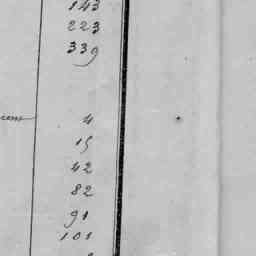 143
223
339
4
15
42
82
91
101